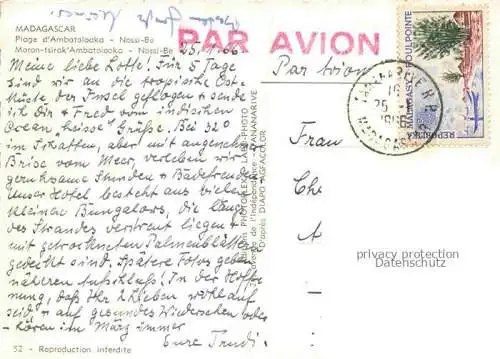 MADAGASCAR
Plage d'Ambatoloaka - Nossi-Be
Moron-tsirak'Ambatoloaka - Nossi-Be
25.1.66
PAR AVION
Par avion
Meine liebe Lotte! Für 5 Tage
sind wir an die tropische Ost-
küste der Insel geflogen & sende
ich Dir & Fred vom indischen
Ocean "heisse" Grüße. Bei 32°
im Schatten, aber mit angenehmer
Brise vom Meer, verleben wir
geruhsame Stunden & Badefreuden.
Unser Hotel besteht aus vielen
kleinen Bungalows, die längs
des Strandes verstreut liegen &
mit getrockneten Palmenblättern
gedeckt sind. Spätere Fotos geben
näheren Aufschluß! In der Hoff-
nung, daß Ihr 2 Lieben wohlauf
seid & auf gesundes Wiedersehen oder
-hören im März immer
Eure Trudi.
52 - Reproduction interdite
Editions PHOTOFLEX - LABO-PHOTO
Avenue de l'Indépendance - TANANARIVE
D'après DIAPO AGFACOLOR
MADAGASY FOULPOINTE
REPOBLIKA
Frau
Che
A
privacy protection
Datenschutz